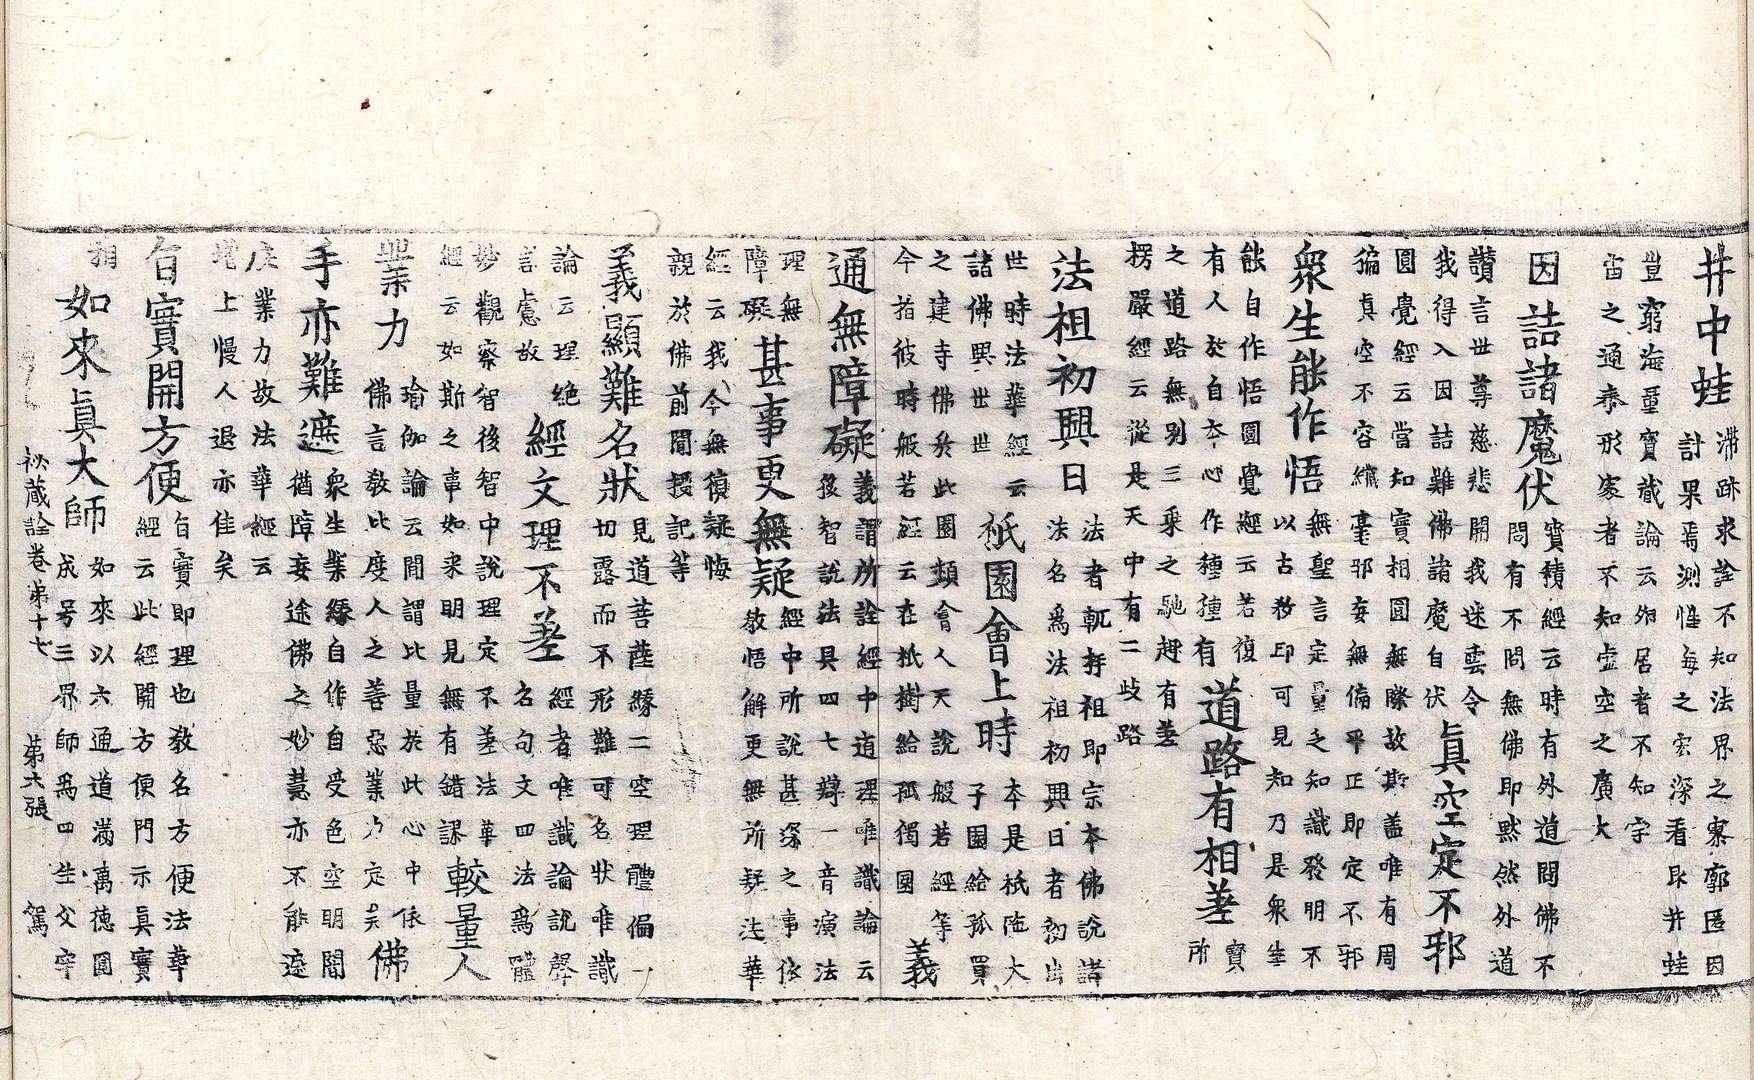 井中蛙滯跡求詮不知法界之寥廓匡因
計果焉測性海之宏深看取井蛙
豈窮海量寶藏論云外居者不知宇
宙之通泰形家者不知虛空之廣大
因詰諸魔伏寶積經云時有外道問佛不
問有不問無佛即默然外道
讚言世尊慈悲開我迷雲令
我得入因詰難佛諸魔自伏眞空定不邪
圓覺經云當知實相圓無際故斯盖唯有周
徧真空不容纖毫邪妄無偏平正即定不邪
衆生能作悟無聖言定量之知識發明不
以古教印可見知乃是衆生
能自作悟圓覺經云若復
有人於自本心作種種有道路有相差實
所
之道路無別三乘之馳趣有差
楞嚴經云從是天中有二歧路
法祖初興日法者軌持祖即宗本佛說諸
法名爲法祖初興日者初出
世時法華經云
諸佛興出世祇園會上時本是祇陁太
子園給孤買
之建寺佛於此園類會人天說般若經等
今指彼時般若經云在祇樹給孤獨園義
通無障礙義謂所詮經中道理唯識論云
後智說法具四七辯一音演法
理無
障礙甚事更無疑經中所說甚深之事依
教悟解更無所疑法華
經云我今無復疑悔
親於佛前聞授記等
義顯難名狀見道菩薩緣二空理體偏一
切露而不形難可名狀唯識
論云理絶
言慮故經文理不差經者唯識論說聲
名句文四法爲體
妙觀察智後智中說理定不差法華
經云如斯之事如來明見無有錯謬較量人
業力瑜伽論云聞謂比量於此心中依
佛言教比度人之善惡業乃定矣佛
手亦難遮衆生業緣自作自受色空明闇
猶障妄途佛之妙慧亦不能遮
業力故法華經云
增上慢人退亦佳矣
旨實開方便旨實即理也教名方便法華
經云此經開方便門示眞實
相如來眞大師如來以六通道滿萬德圓
成号三界師爲四生父字
秘藏詮卷第十七 第六張 駕